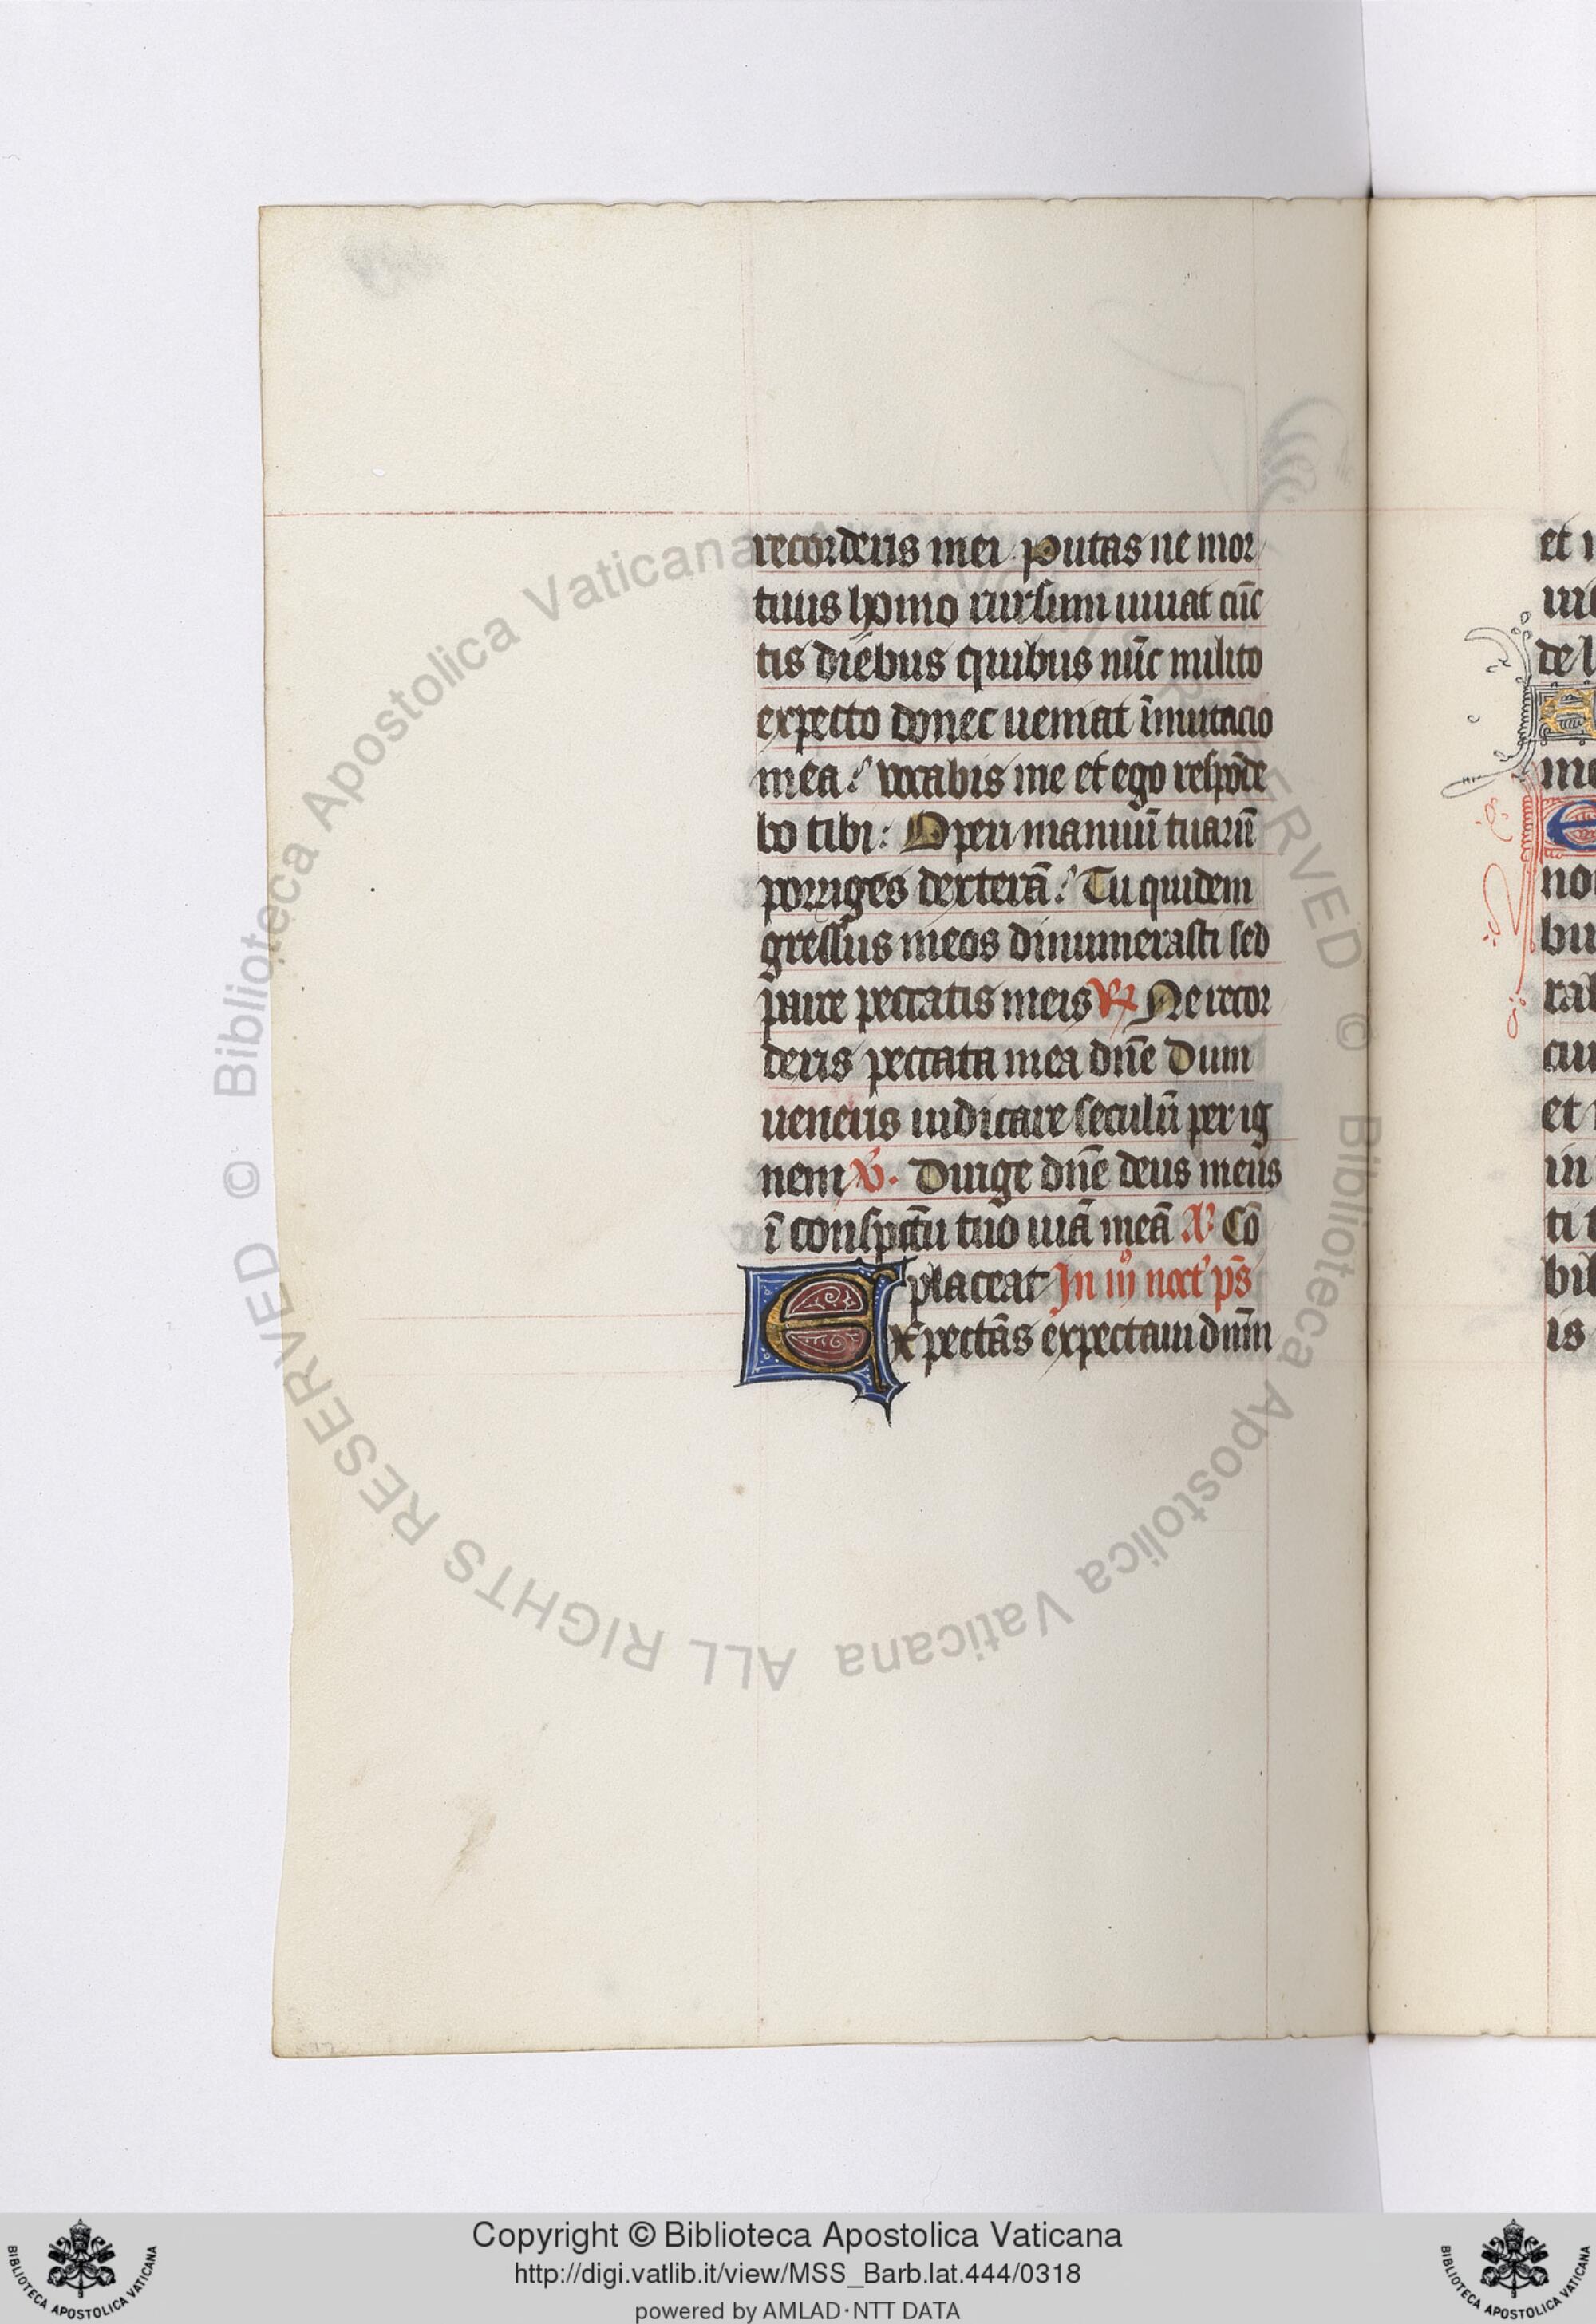 recorderis mei. Putas ne mor
tuus homo rursum uiuat cūc
tis diebus quibus nūc milito
expecto donec ueniat īmutacio
mea: vocabis me et ego respōde
bo tibi: Operi manuū tuarū
porriges dexterā: Tu quidem
gressus meos dinumerasti sed
parce peccatis meis ℟ Ne recor
deris peccata mea dn̄e Dum
ueneris iudicare seculū per ig
nem ℣. Dirige dn̄e deus meus
ī conspectu tuo uiā meā A. Cō
placeat In iij noct' ps̄
Expectās expectaui dnm̄
et
de
no
bu
et
in
ti
is
© Biblioteca Apostolica Vaticana ALL RIGHTS RESERVED © Biblioteca Apostolica Vaticana ALL RIGHTS RESERVED
Copyright © Biblioteca Apostolica Vaticana
http://digi.vatlib.it/view/MSS_Barb.lat.444/0318
powered by AMLAD·NTT DATA
BIBLIOTECA APOSTOLICA VATICANA
BIBLIOTECA APOSTOLICA VATICANA